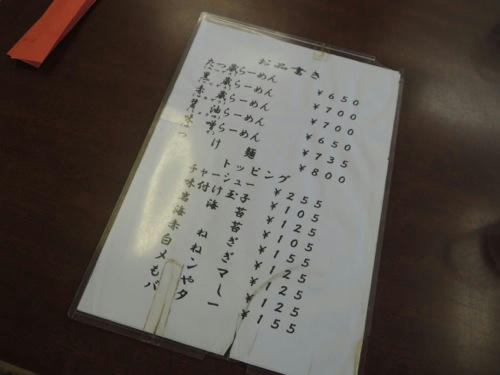 お品書き
たつ蔵らーめん ¥650
黒蔵らーめん ¥700
赤蔵らーめん ¥700
醤油らーめん ¥650
味噌らーめん ¥735
つけ麺 ¥800
トッピング
チャーシュー ¥255
味付け玉子 ¥105
岩海苔 ¥120
海苔 ¥105
赤ねぎ ¥155
白ねぎ ¥125
メンマ ¥125
もやし ¥125
バター ¥155